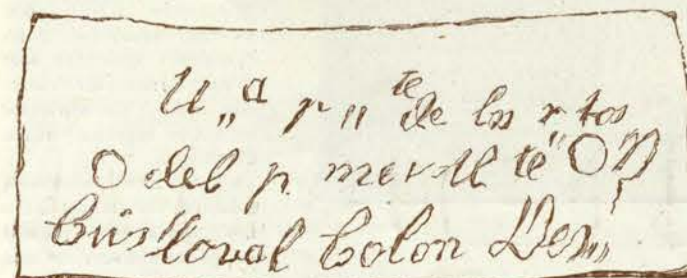 U„ᵃ p„ᵗᵉ de los r tos
O del p. mer Al te" O Dn
Cristoval Colon Des„